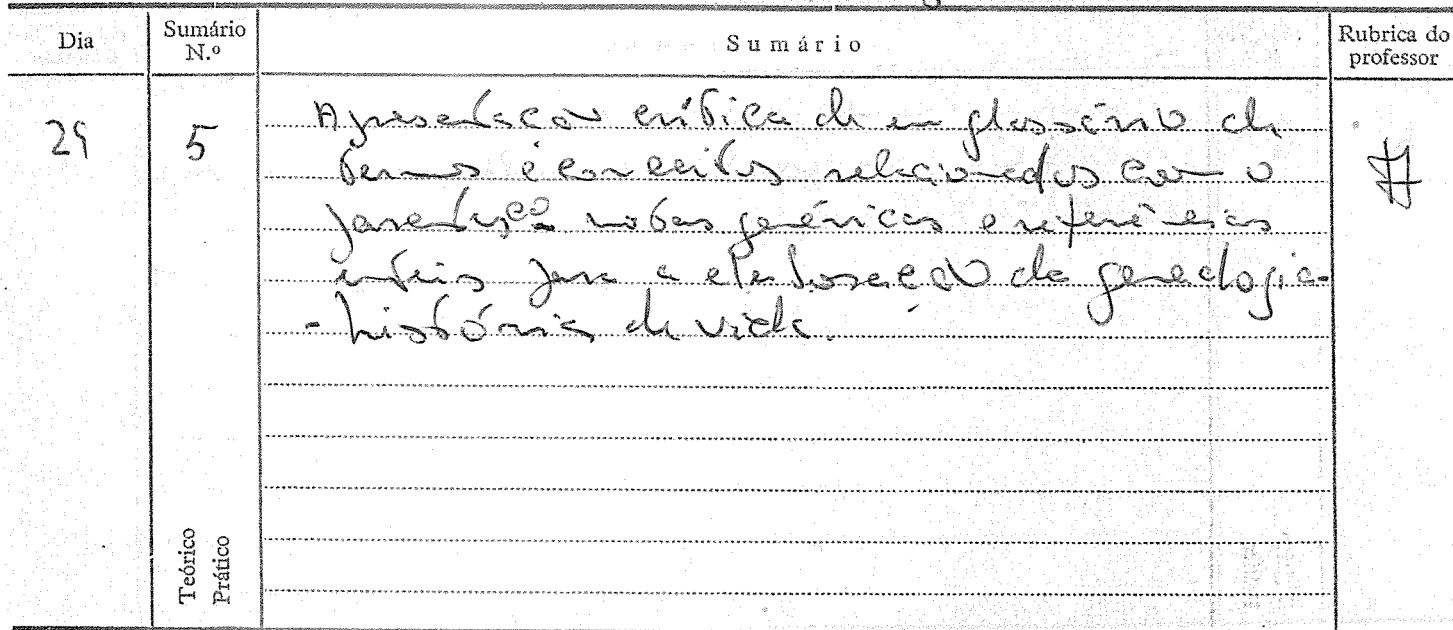 Dia
Sumário N.º
Sumário
Rubrica do professor
29
5
Apresentação crítica de um glossário de
termos e conceitos relacionados com o
parentesco notas genéricas e referências
úteis para a elaboração da genealogia-
- história de vida.
Teórico
Prático